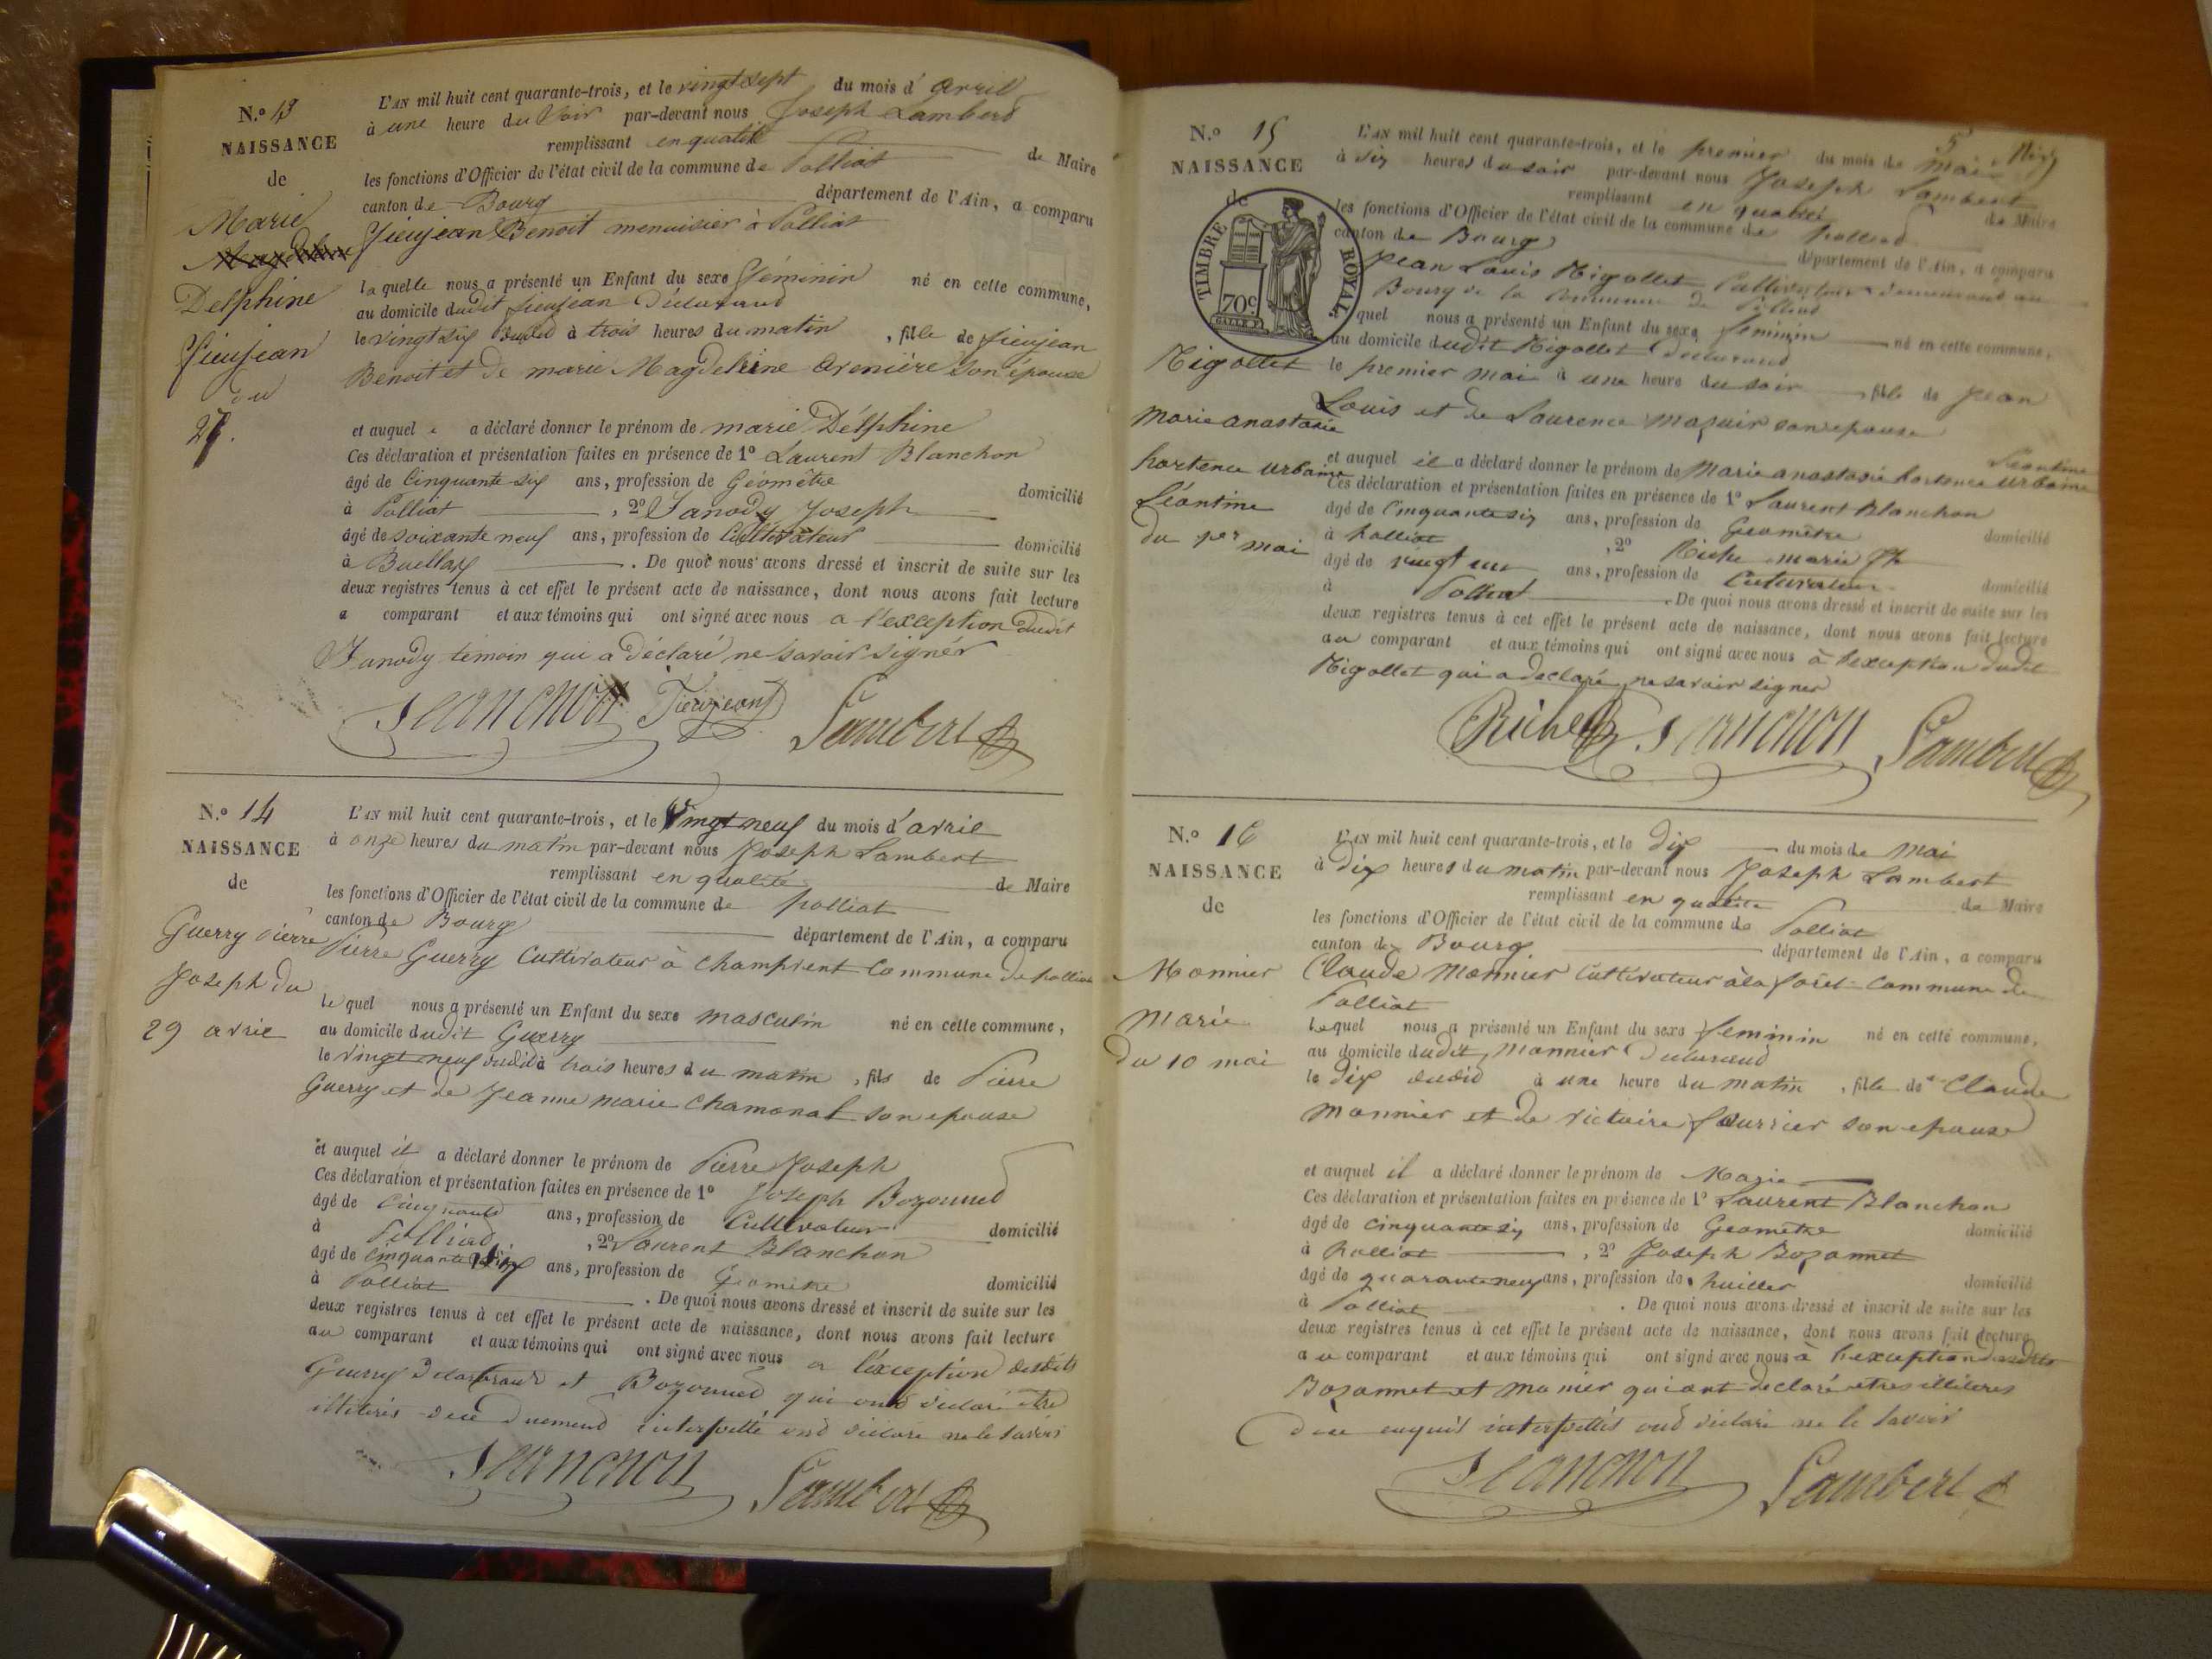 N.o 13
NAISSANCE
de
Marie
Delphine
fieujean
du
27.
L'AN mil huit cent quarante-trois, et le vingt sept du mois d' avril
à une heure du Soir par-devant nous Joseph Lambert
remplissant en qualité de Maire
les fonctions d'Officier de l'état civil de la commune de Polliat
canton de Bourg département de l'Ain, a comparu
fieujean Benoit menuisier à Polliat
la quelle nous a présenté un Enfant du sexe féminin né en cette commune,
au domicile dudit fieujean Déclarant
le vingt six dudit à trois heures du matin , fille de fieujean
Benoit et de marie Magdeleine Areniére Son épouse
et auquel e a déclaré donner le prénom de marie Délphine
Ces déclaration et présentation faites en présence de 1o Laurent Blanchon
âgé de Cinquante six ans, profession de Géomêtre domicilié
à Polliat , 2o Janody Joseph
âgé de soixante neuf ans, profession de Cultivateur domicilié
à Buellas . De quoi nous avons dressé et inscrit de suite sur les
deux registres tenus à cet effet le présent acte de naissance, dont nous avons fait lecture
a comparant et aux témoins qui ont signé avec nous a l'exception dudit
Janody témoin qui a déclaré ne Savoir Signér
Blanchon Fieujean Lambert
N.o 14
NAISSANCE
de
Guerry Pierre
Joseph du
29 avril
L'AN mil huit cent quarante-trois, et le Vingt neuf du mois d'avril
à onze heures du matin par-devant nous Joseph Lambert
remplissant en qualité de Maire
les fonctions d'Officier de l'état civil de la commune de polliat
canton de Bourg département de l'Ain, a comparu
Pierre Guerry Cultivateur à Champient Commune de polliat
le quel nous a présenté un Enfant du sexe masculin né en cette commune,
au domicile dudit Guerry
le Vingt neuf dudit à trois heures du matin , fils de Pierre
Guerry et de Jeanne marie Chamonal son epouse
et auquel il a déclaré donner le prénom de Pierre Joseph
Ces déclaration et présentation faites en présence de 1o Joseph Bozonnet
âgé de ans, profession de Cultivateur domicilié
à Polliat , 2o Laurent Blanchon
âgé de cinquante six ans, profession de Géometre domicilié
à Polliat . De quoi nous avons dressé et inscrit de suite sur les
deux registres tenus à cet effet le présent acte de naissance, dont nous avons fait lecture
au comparant et aux témoins qui ont signé avec nous a l'éxception desdits
Guerry Déclarant et Bozonnet qui ont déclaré être
illiterés dece duement interpellé ont déclaré ne le savoir
Blanchon Lambert
5
N.o 15
NAISSANCE
de
TIMBRE ROYAL
70c
Nigollet
marie anastasie
hortence urbaine
Léontine
du 1er mai
L'AN mil huit cent quarante-trois, et le premier du mois de mai
à six heures du soir par-devant nous Joseph Lambert
remplissant en qualité de Maire
les fonctions d'Officier de l'état civil de la commune de polliat
canton de Bourg département de l'Ain, a comparu
Jean Louis Nigollet Cultivateur demeurant au
Bourg de la Commune de Polliat
quel nous a présenté un Enfant du sexe feminin né en cette commune,
au domicile dudit Nigollet Declarant
le premier mai à une heure du soir , fille de Jean
Louis et de Laurence mazuir son epouse
Léontine
et auquel il a déclaré donner le prénom de Marie anastasie hortence urbaine
Ces déclaration et présentation faites en présence de 1o Laurent Blanchon
âgé de Cinquante six ans, profession de Geomêtre domicilié
à Polliat , 2o Riche marie Jh
âgé de vingt un ans, profession de Cutivateur domicilié
à Polliat . De quoi nous avons dressé et inscrit de suite sur les
deux registres tenus à cet effet le présent acte de naissance, dont nous avons fait lecture
au comparant et aux témoins qui ont signé avec nous à l'exception dudit
Nigollet qui a declaré ne savoir signer
Riche Blanchon Lambert
N.o 16
NAISSANCE
de
Monnier
Marie
du 10 mai
L'AN mil huit cent quarante-trois, et le dix du mois de mai
à dix heures du matin par-devant nous Joseph Lambert
remplissant en qualité de Maire
les fonctions d'Officier de l'état civil de la commune de Polliat
canton de Bourg département de l'Ain, a comparu
Claude Monnier Cultivateur à la forêt commune de
Polliat
Lequel nous a présenté un Enfant du sexe feminin né en cette commune,
au domicile dudit Monnier Déclarant
le dix dudit à une heure du matin , fille de Claude
monnier et de victoire fourrier son epouse
et auquel il a déclaré donner le prénom de Marie
Ces déclaration et présentation faites en présence de 1o Laurent Blanchon
âgé de cinquante six ans, profession de Geomêtre domicilié
à Polliat , 2o Joseph Bozonnet
âgé de quarante neuf ans, profession de huilier domicilié
à Polliat . De quoi nous avons dressé et inscrit de suite sur les
deux registres tenus à cet effet le présent acte de naissance, dont nous avons fait lecture
au comparant et aux témoins qui ont signé avec nous à l'exception desdits
Bozonnet et monier qui ont declaré etres illiteres
dece enquis interpellés ont déclaré ne le savoir
Blanchon Lambert